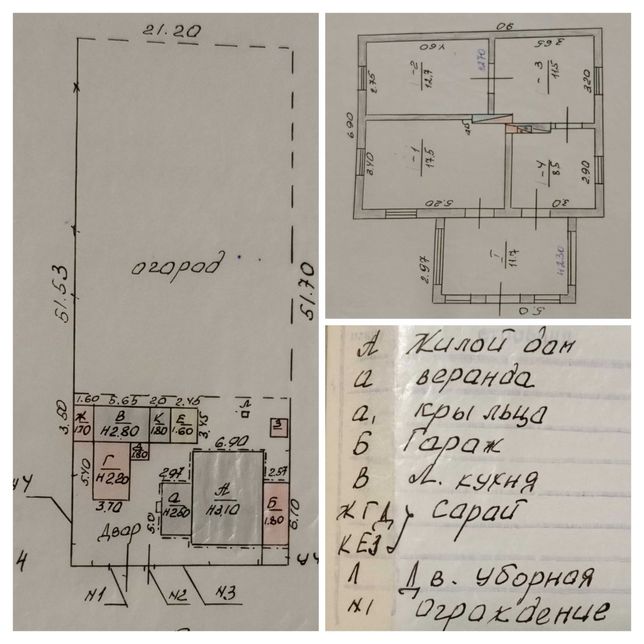 21.20
огород
51.53
51.70
1.60 5.65 2.0 2.45
Л
3.50
Ж
1.70
В
H2.80
К
1.80
Е
1.60
3.45
З
Д
1.80
6.90
5.40
Г
H2.20
2.97
2.57
3.70
а
H2.60
А
H3.10
Б
1.80
6.10
5.0
Двор
4
N1
N2
N3
90
4.60
3.65
2.75
I-2
12.7
I-3
11.5
3.20
6.90
I-1
17.5
I-4
8.5
3.40
2.90
5.20
3.0
2.97
I
11.7
5.0
А Жилой дом
а веранда
а, крыльца
Б Гараж
В Л. кухня
ЖГД} Сарай
КЕЗ
Л Дв. уборная
N1 ограждение